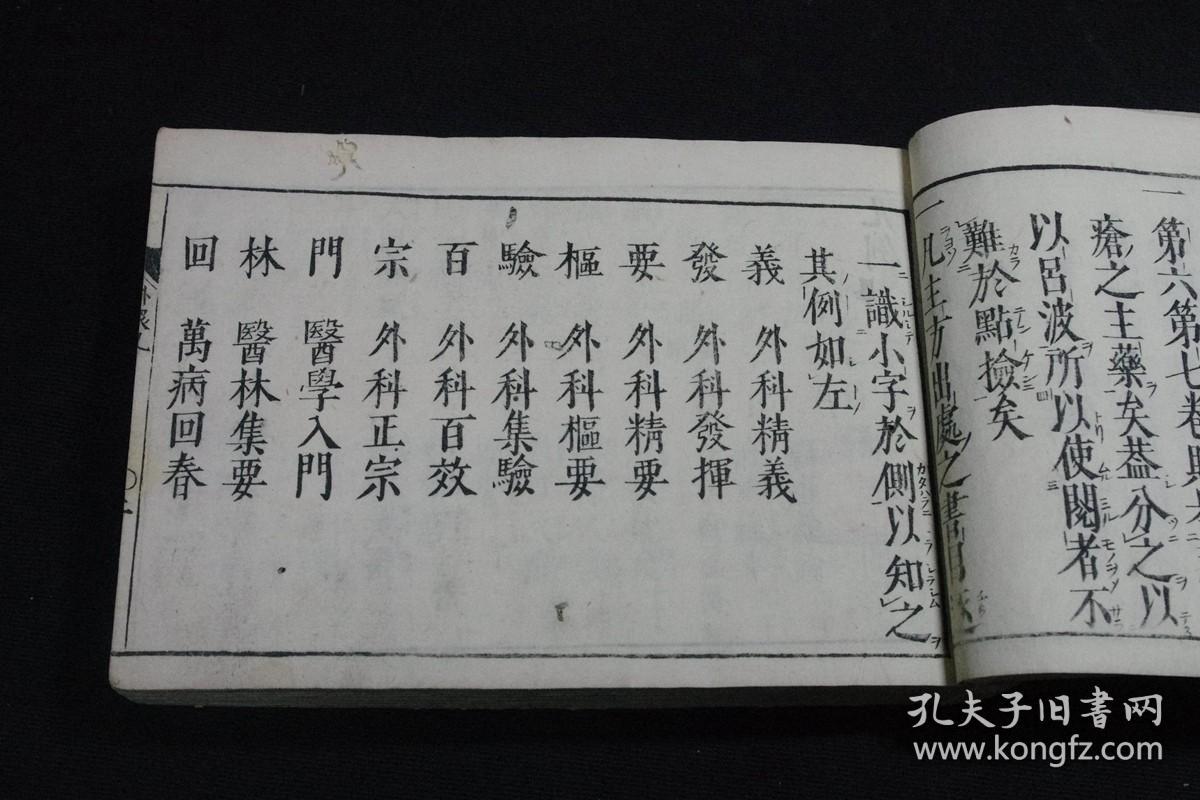 一第六第七卷
瘡之主藥矣葢分之以
以呂波所以使閱者不
難於點撿矣
一凡主方出處之書
一識小字於側以知之
其例如左
義 外科精義
發 外科發揮
要 外科精要
樞 外科樞要
驗 外科集驗
百 外科百效
宗 外科正宗
門 醫學入門
林 醫林集要
回 萬病回春
孔夫子旧书网
www.kongfz.com